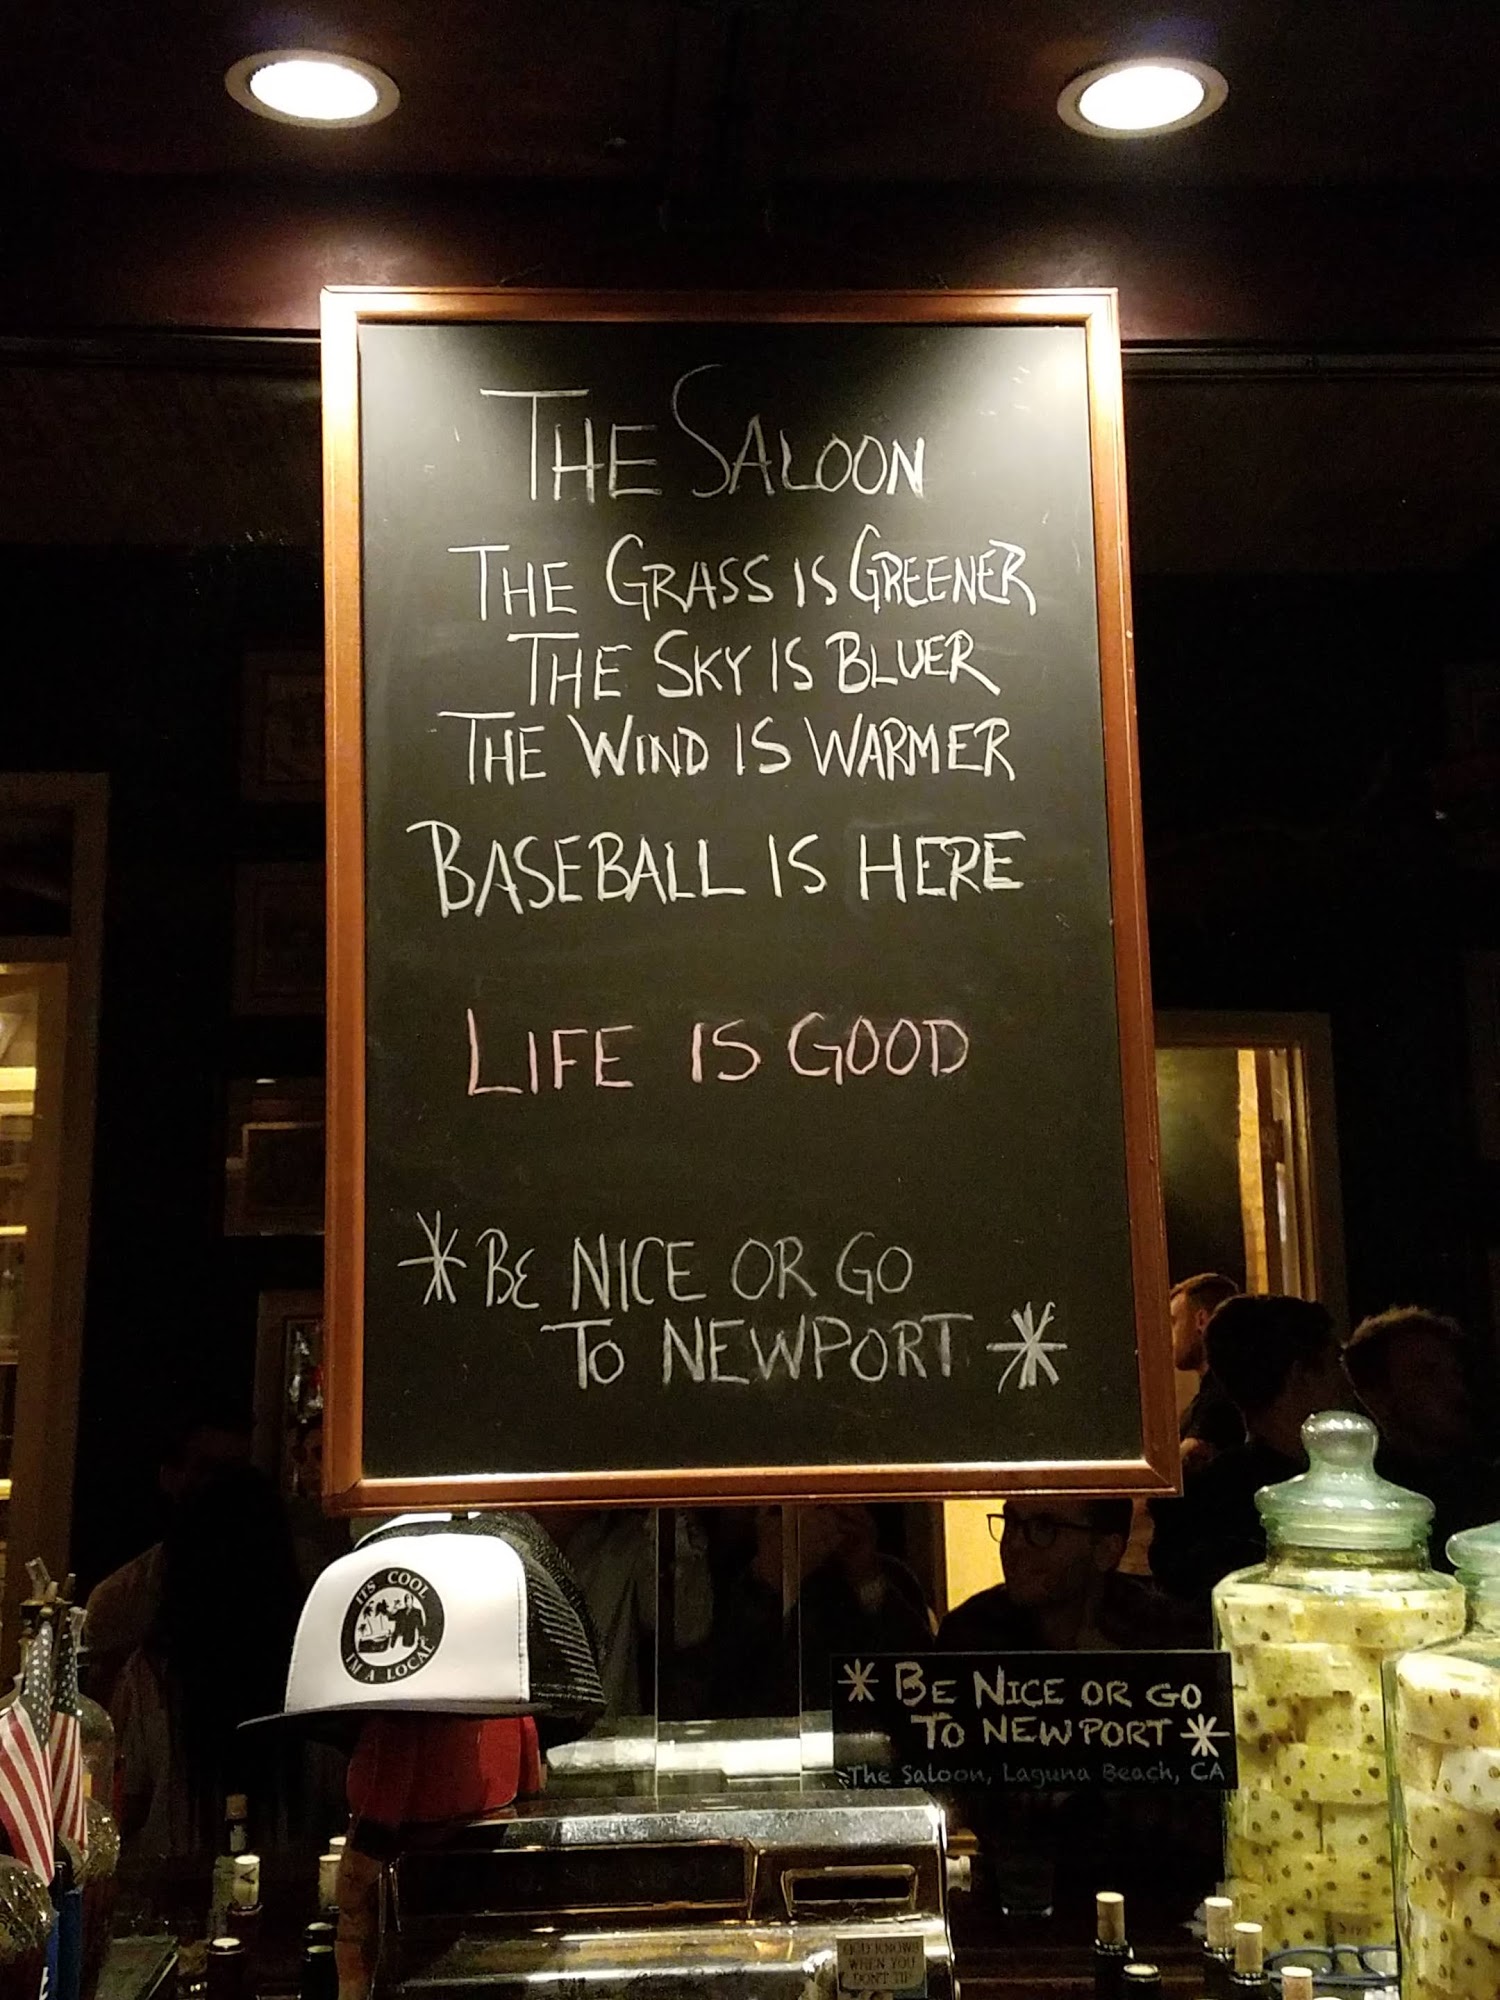 THE SALOON
THE GRASS IS GREENER
THE SKY IS BLUER
THE WIND IS WARMER
BASEBALL IS HERE
LIFE IS GOOD
*BE NICE OR GO
TO NEWPORT*
ITS COOL
IM A LOCAL
* BE NICE OR GO
TO NEWPORT *
The Saloon, Laguna Beach, CA
GOD KNOWS
WHEN YOU
DON'T TIP